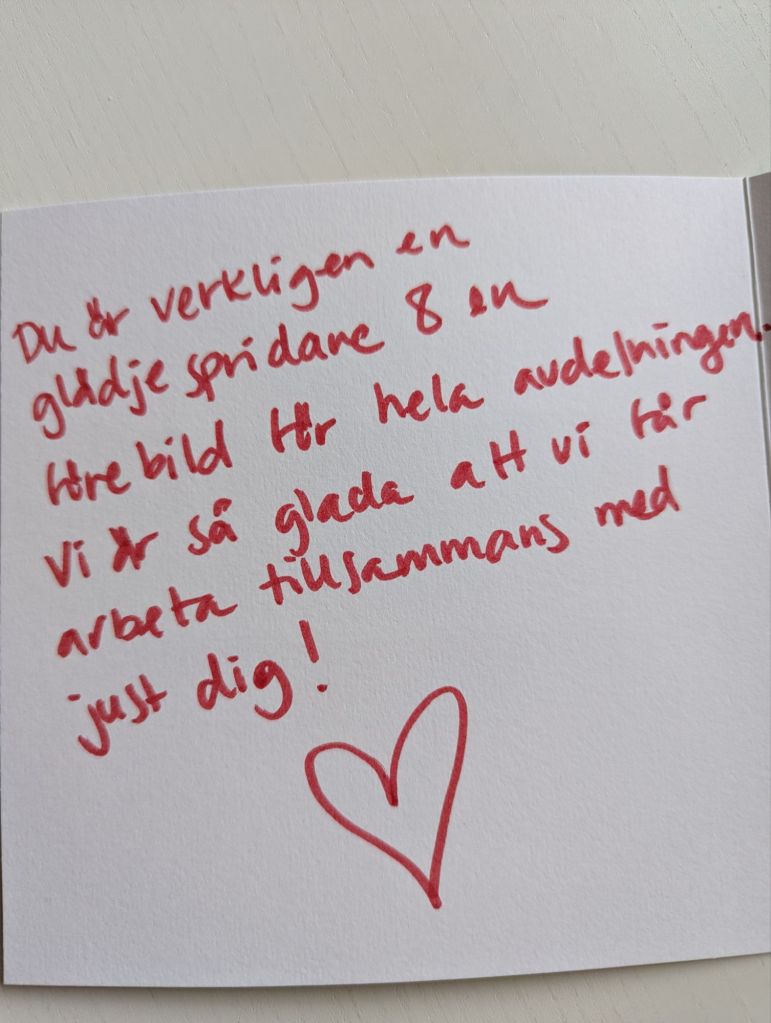 Du är verkligen en
glädjespridare & en
förebild för hela avdelningen.
Vi är så glada att vi får
arbeta tillsammans med
just dig!